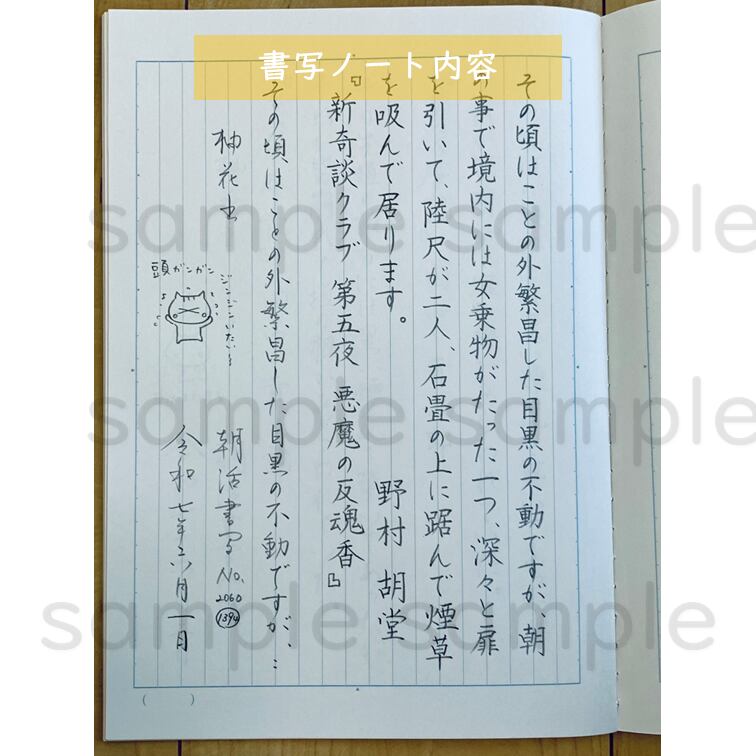 書写ノート内容
その頃はことの外繁昌した目黒の不動ですが、朝
の事で境内には女乗物がたった一つ、深々と扉
を引いて、陸尺が二人、石畳の上に踞んで煙草
を吸んで居ります。 野村 胡堂
『新奇談クラブ 第五夜 悪魔の反魂香』
その頃はことの外繁昌した目黒の不動ですが、…
柚花書 朝活書写 No.
2060
1394
頭ガンガン
ジンジンいたい
令和七年六月一日
sample sample
sample sample
sample sample
( )